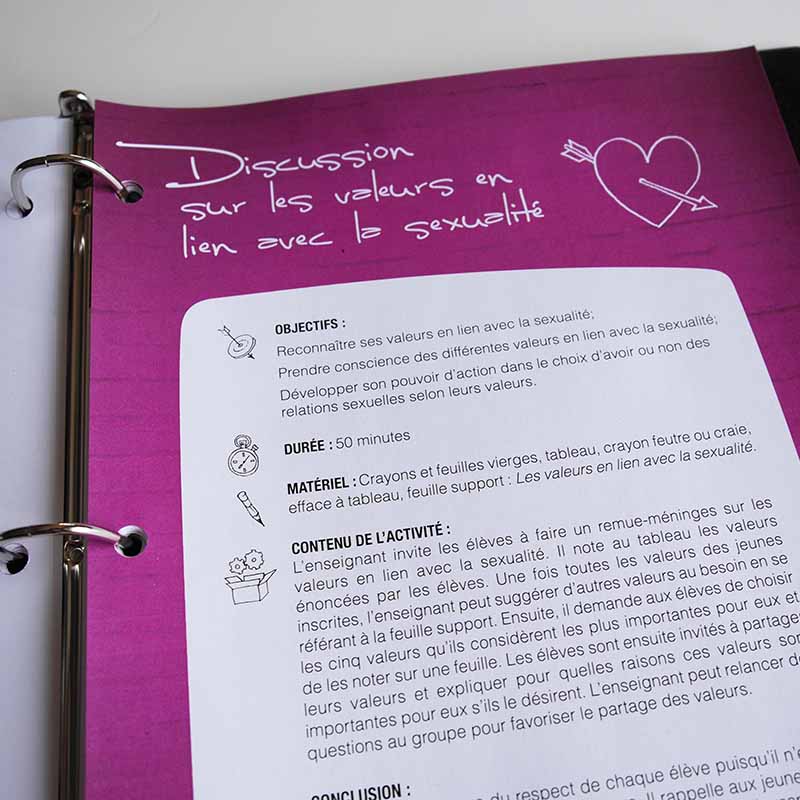 Discussion
sur les valeurs en
lien avec la sexualité
OBJECTIFS :
Reconnaître ses valeurs en lien avec la sexualité;
Prendre conscience des différentes valeurs en lien avec la sexualité;
Développer son pouvoir d'action dans le choix d'avoir ou non des
relations sexuelles selon leurs valeurs.
DURÉE : 50 minutes
MATÉRIEL : Crayons et feuilles vierges, tableau, crayon feutre ou craie,
efface à tableau, feuille support : Les valeurs en lien avec la sexualité.
CONTENU DE L'ACTIVITÉ :
L'enseignant invite les élèves à faire un remue-méninges sur les
valeurs en lien avec la sexualité. Il note au tableau les valeurs
énoncées par les élèves. Une fois toutes les valeurs des jeunes
inscrites, l'enseignant peut suggérer d'autres valeurs au besoin en se
référant à la feuille support. Ensuite, il demande aux élèves de choisir
les cinq valeurs qu'ils considèrent les plus importantes pour eux et
de les noter sur une feuille. Les élèves sont ensuite invités à partager
leurs valeurs et expliquer pour quelles raisons ces valeurs son
importantes pour eux s'ils le désirent. L'enseignant peut relancer de
questions au groupe pour favoriser le partage des valeurs.
CONCLUSION :
du respect de chaque élève puisqu'il n'e
Il rappelle aux jeune